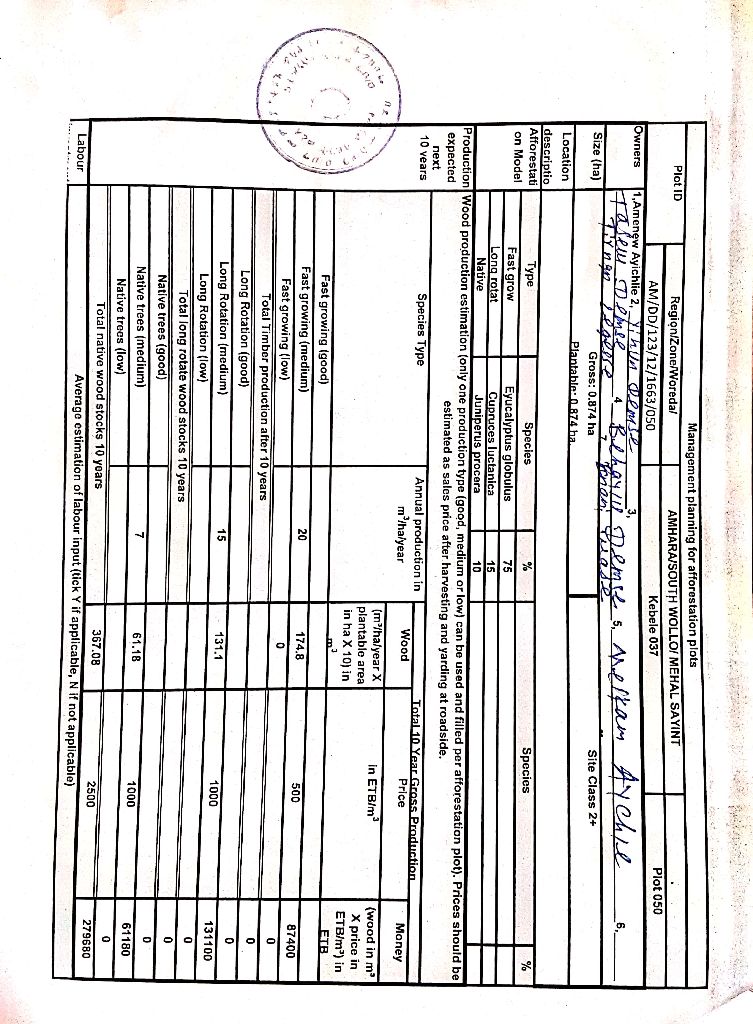 Management planning for afforestation plots
Plot ID Region/Zone/Woreda/ AMHARA/SOUTH WOLLO/ MEHAL SAYINT Plot 050
AM/DD/123/12/1663/050 Kebele 037
Owners 1.Amenew Ayichlie 2. Yihun Demse 3. 5. Melkam Aychle 6.
Tasew Demse 4. Demse
Size (ha) Gross: 0.874 ha Site Class 2+
Plantable: 0.874 ha
Location
descriptio
Afforestati Type Species % Species %
on Model Fast grow Eyucalyptus globulus 75
Long rotat Cupruces luctanica 15
Native Juniperus procera 10
Production Wood production estimation (only one production type (good, medium or low) can be used and filled per afforestation plot). Prices should be
expected estimated as sales price after harvesting and yarding at roadside.
next
10 years
Species Type Annual production in Total 10 Year Gross Production
m³/ha/year Wood Price Money
(m³/ha/year X in ETB/m³ (wood in m³
plantable area X price in
in ha X 10) in ETB/m³) in
m³ ETB
Fast growing (good)
Fast growing (medium) 20 174.8 500 87400
Fast growing (low) 0 0
Total Timber production after 10 years 0
Long Rotation (good) 0
Long Rotation (medium) 15 131.1 1000 131100
Long Rotation (low) 0
Total long rotate wood stocks 10 years 0
Native trees (good) 0
Native trees (medium) 7 61.18 1000 61180
Native trees (low) 0
Total native wood stocks 10 years 367.08 2500 279680
Labour Average estimation of labour input (tick Y if applicable, N if not applicable)